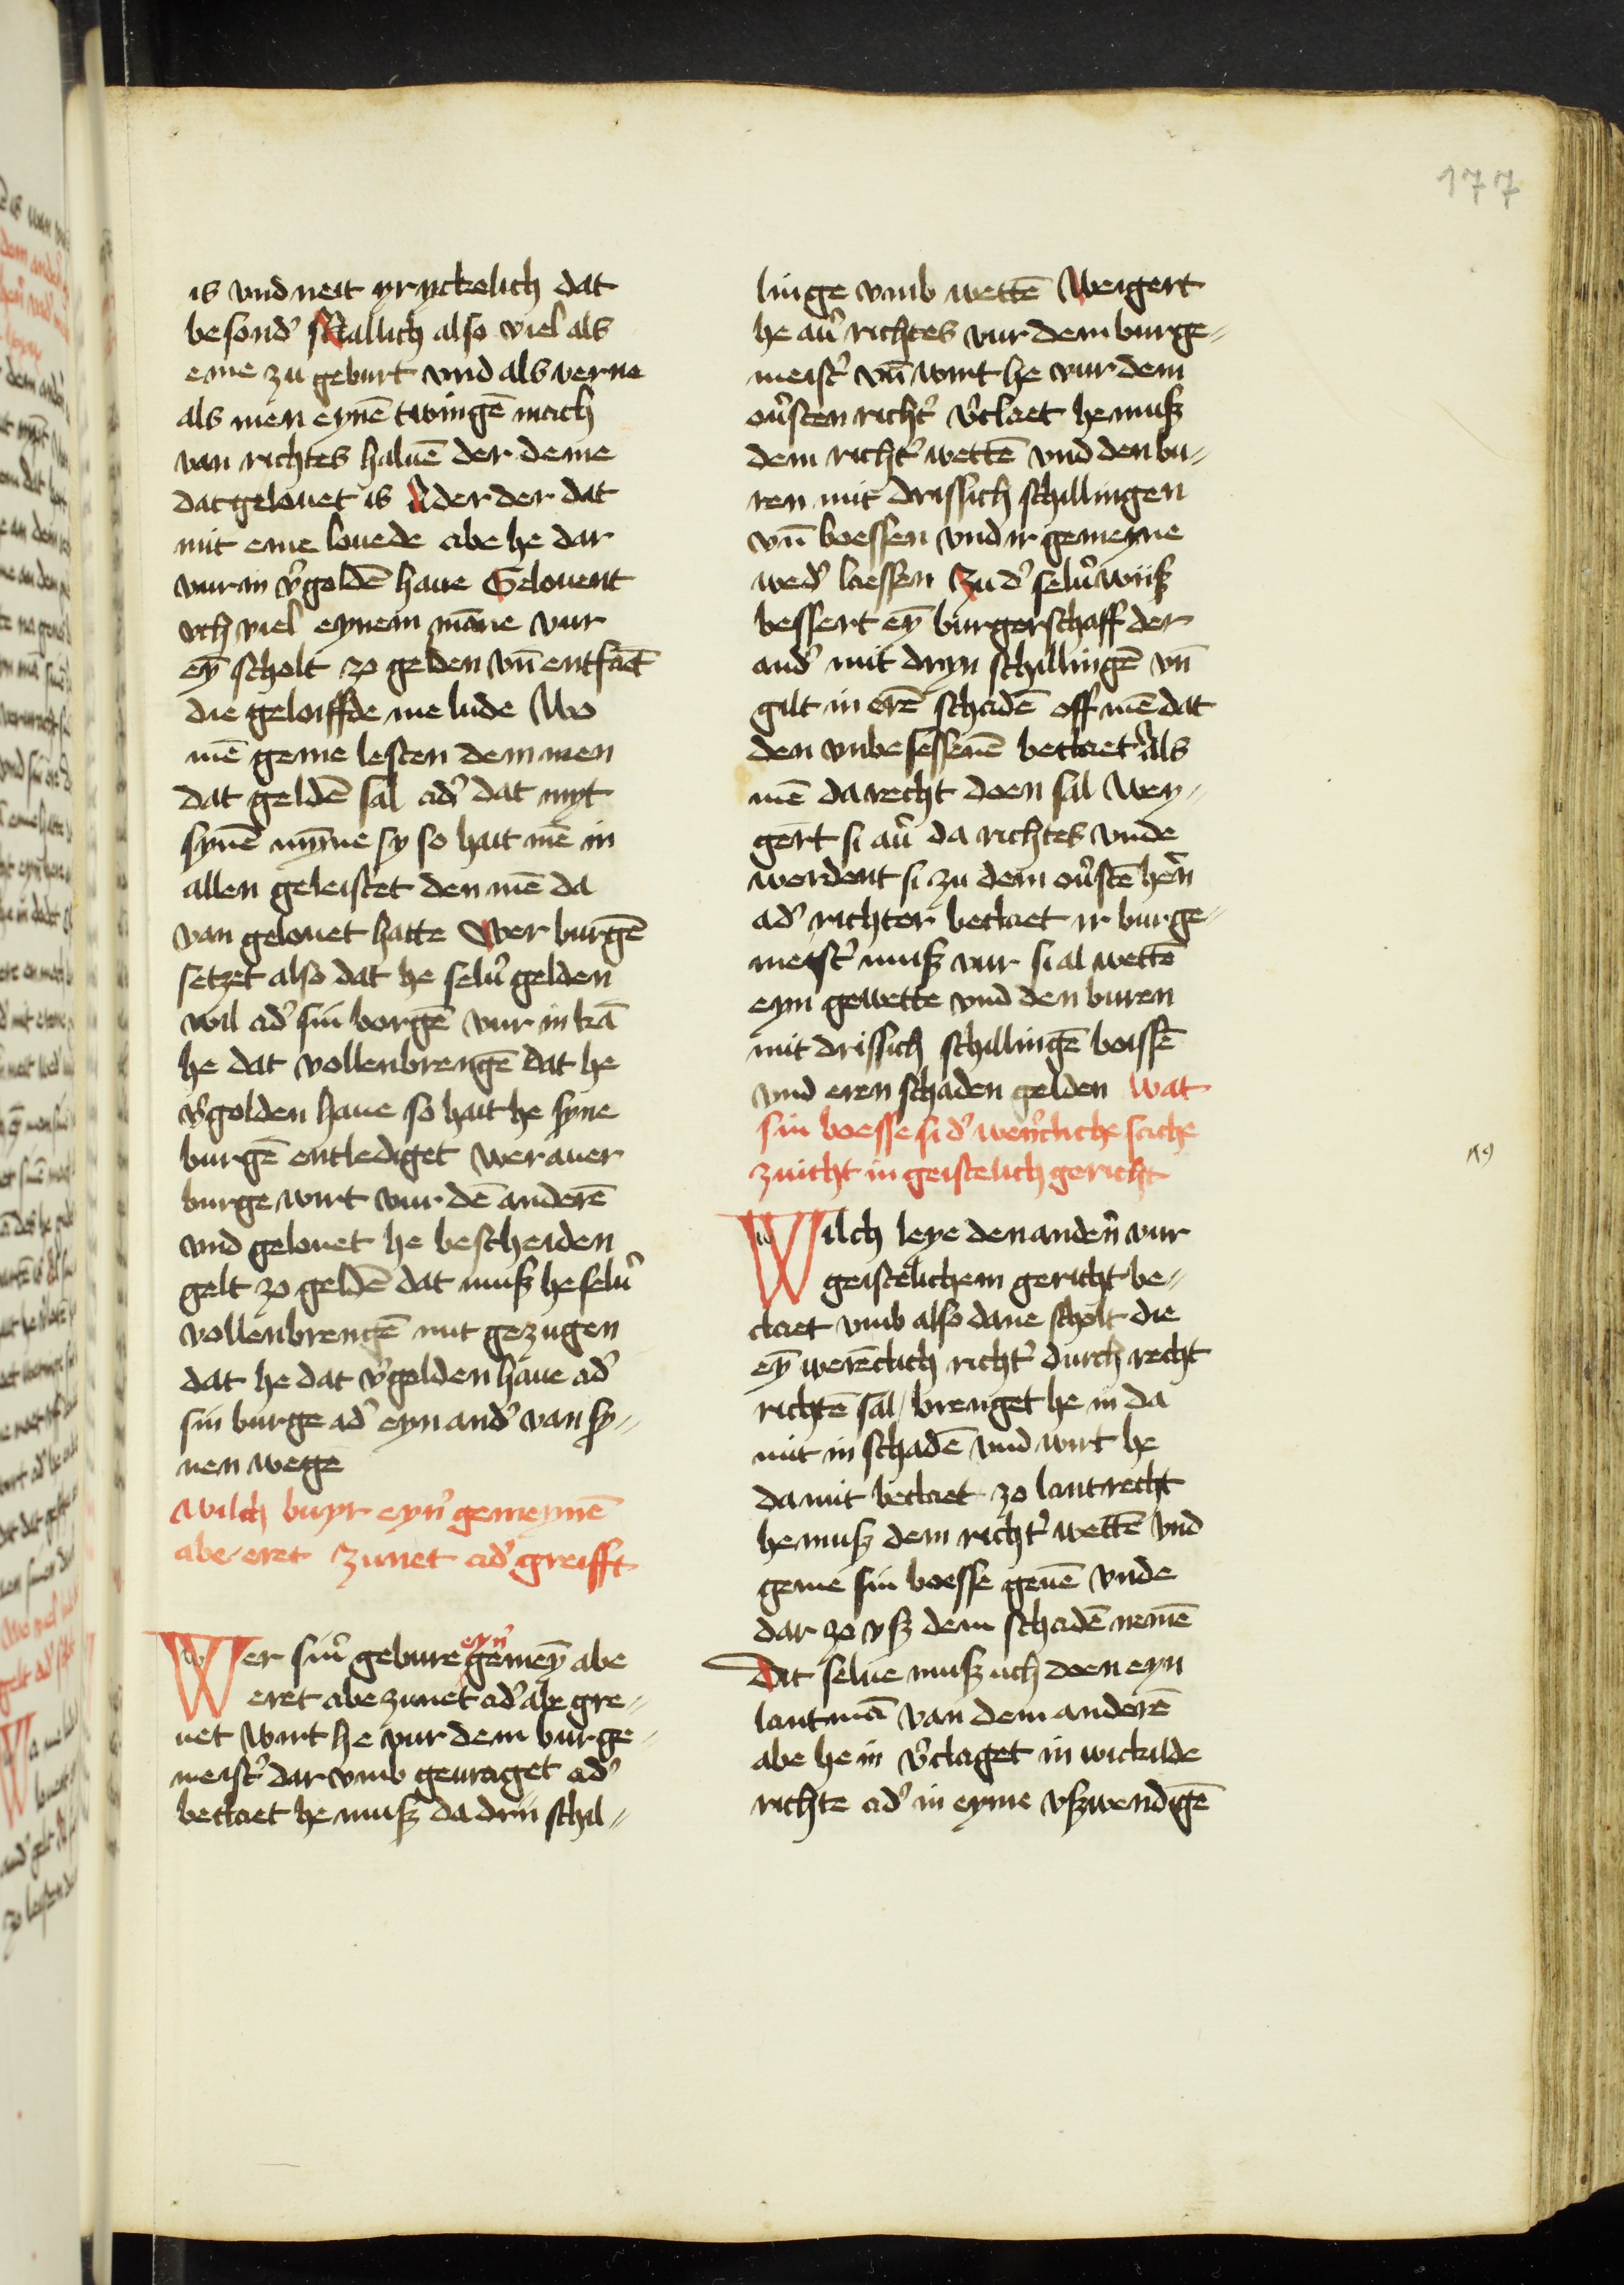 177
is vnd neit yryckelich dat
besond' Mallich also viel als
eme zu geburt vnd als verne
als men eynē twingē mach
van richtes haluē der deme
dat gelouet is Ader der dat
mit eme louede abe he dar
vur in v'goldē haue Gelouent
vch viel eynem māne vur
eȳ scholt zo gelden vn̄ entfāt
die geloiffde me lude Wo
mē geme lesten dem men
dat geldē sal ad' dat myt
synē mȳme sy so hait mē in
allen geleistet den mē da
van gelouet hatte Wer burgē
setzet also dat he selu' gelden
wil ad' sin borgē vur in kā
he dat vollenbrengē dat he
v'golden haue so hait he syne
burgē entlediget wer auer
burge wirt vur dē anderē
vnd gelouet he bescheiden
gelt zo geldē dat musz he selu'
vollenbrengē mit gezugen
dat he dat v'golden haue ad'
sin burge ad' eyn and' van sy=
nen wegē
Wilch buyr eyn' gemeynē
abe eret zunet ad' greifft
Wer sin' gebure eyn' gemeȳ abe
eret abe zunet ad' abe gre=
uet wirt he vur dem burge=
meist' dar vmb geuraget ad'
beclaet he musz da drii schil=
linge vmb wettē Weigert
he au' richtes vur dem burge=
meist' vn̄ wirt he vur dem
ou'sten richt' v'claet he musz
dem richt' wettē vnd den bu=
ren mit drissich schillingen
vn̄ boessen vnd ir gemeyne
wed' laessen Zu d' selu' wiisz
bessert eȳ burgerschaff der
and' mit dryn schillingē vn̄
gilt in erē schadē off mē dat
den vnbesessenē beclaet als
mē da recht doen sal Wey=
gert si au' da richtes vnde
werdent si zu dem ou'stē hen'
ad' richter beclaet ir burge=
meist' musz vur si al wettē
eyn gewette vnd den buren
mit drissich schillingē boissē
vnd eren schaden gelden Wat
sin boesse si d' wer'cliche sache
zuicht in geistelich gericht
Wilch leye den anden' vur
geistelichem gericht be=
claet vmb also dane scholt die
eȳ werēclich richt' durch recht
richtē sal / brenget he in da
mit in schadē vnd wirt he
da mit beclaet zo lantrecht
he musz dem richt' wettē vnd
geme sin boesse geuē vnde
dar zo vsz dem schadē nemē
Dat selue musz uch doen eyn
lantmā van dem anderē
abe he in v'claget in wickilde
richte ad' in eyme vszwendigē